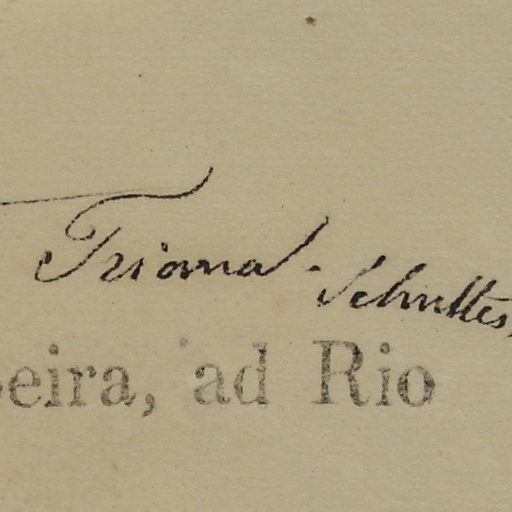 Trioma Schultes,
eira, ad Rio